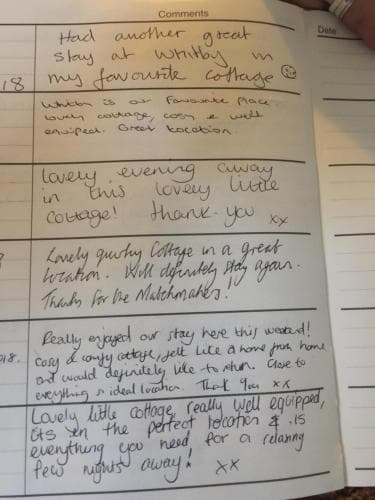 Comments
Date
Had another great
stay at Whitby in
my favourite cottage
18
Which is our favourite place.
lovely cottage, cosy & well
equiped. Great location.
Lovely evening away
in this lovely little
cottage! Thank-you xx
Lovely quirky Cottage in a great
location. Will definitely stay again.
Thanks for the Matchmakers!
018.
Really enjoyed our stay here this weekend!
Cosy & comfy cottage, felt like a home from home
and would definitely like to return. Close to
everything & ideal location. Thank You xx
Lovely little cottage, really well equipped,
its in the perfect location & is
everything you need for a relaxing
few nights away! xx